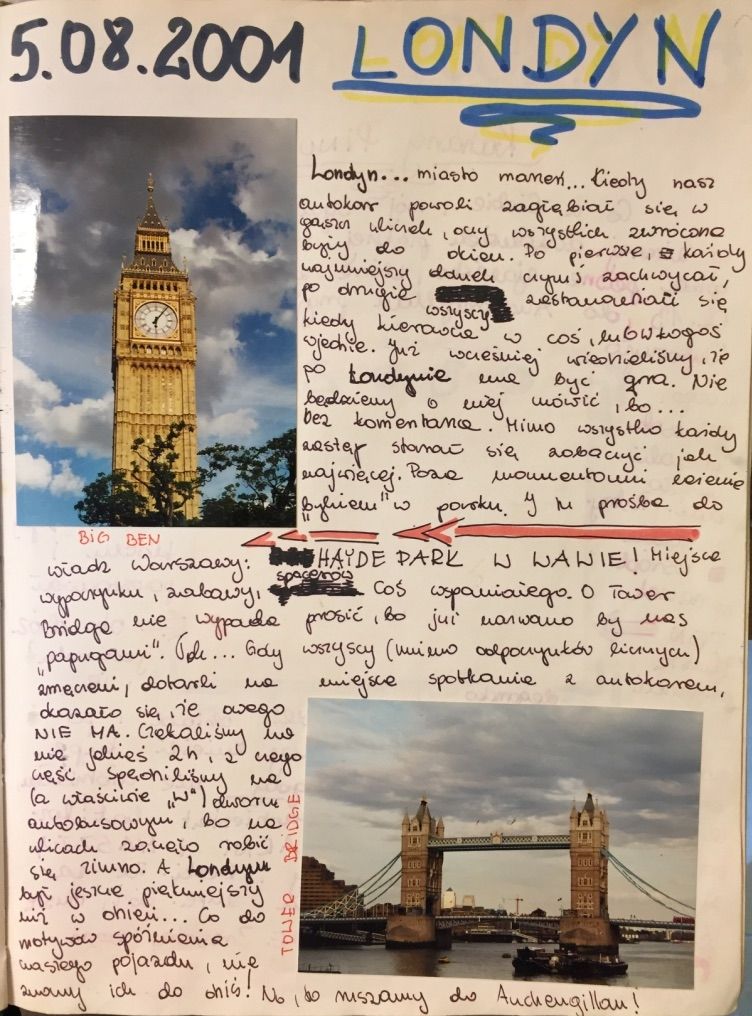 5.08.2001 LONDYN
Londyn... miasto marzeń... Kiedy nasz
autokar powoli zagłębiał się w
gąszcz uliczek, oczy wszystkich zwrócone
były do okien. Po pierwsze, każdy
najmniejszy domek czymś zachwycał,
po drugie zastanawiali się
wszyscy
kiedy kierowca w coś, lub w kogoś
wjedzie. Już wcześniej wiedzieliśmy, że
po Londynie ma być gra. Nie
będziemy o niej mówić, bo...
bez komentarza. Mimo wszystko każdy
zastęp starał się zobaczyć jak
najwięcej. Poza momentami leżenia
"bykiem" w parku. I tu prośba do
BIG BEN
władz Warszawy: HAYDE PARK W WAWIE! Miejsce
spacerów
wypoczynku, zabawy, Coś wspaniałego. O Tower
Bridge nie wypada prosić, bo już nazwano by nas
"papugami". Tak... Gdy wszyscy (mimo odpoczynków licznych)
zmęczeni, dotarli na miejsce spotkania z autokarem,
okazało się, że owego
NIE MA. Czekaliśmy na
nie jakieś 2h, z czego
część spędziliśmy na
(a właściwie "W") dworcu
autobusowym, bo na
ulicach zaczęło robić
się zimno. A Londyn
był jeszcze piękniejszy
niż w dzień... Co do
motywów spóźnienia
naszego pojazdu, nie
znamy ich do dziś! No, bo ruszamy do Auchengillan!
TOWER BRIDGE